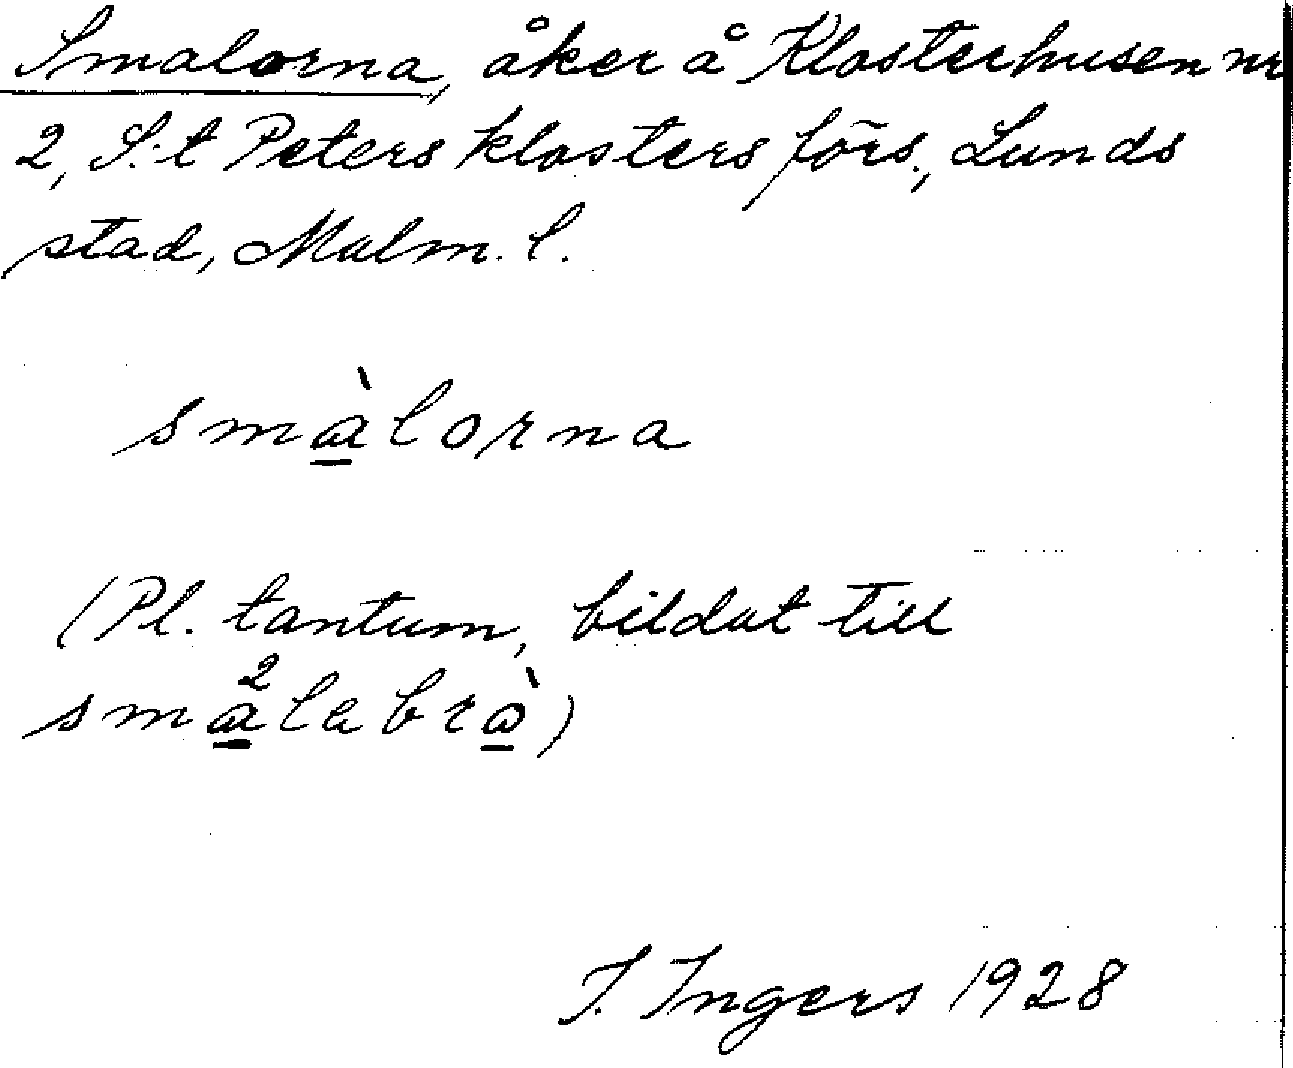 Smalorna, åker å Klosterhusen nr
2, S:t Peters klosters förs., Lunds
stad, Malm. l.
smàlorna
(Pl. tantum, bildat till
sma²labrò)
I. Ingers 1928